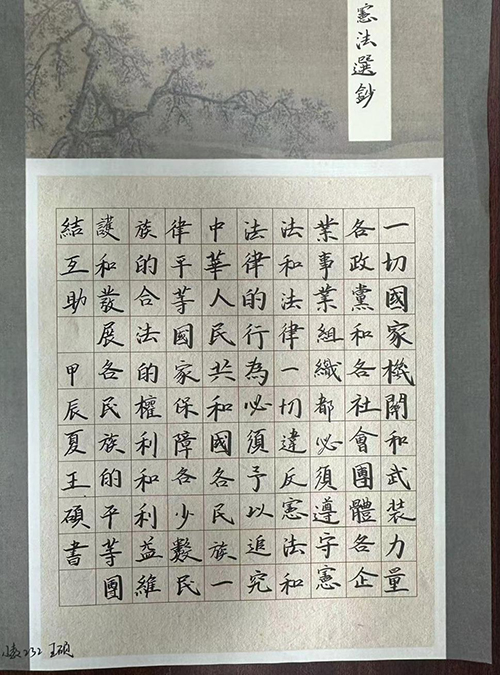 憲法選鈔
一切國家機關和武装力量
各政黨和各社會團體各企
業事業組織都必須遵守憲
法和法律一切違反憲法和
法律的行為必須予以追究
中華人民共和國各民族一
律平等國家保障各少數民
族的合法的權利和利益維
護和發展各民族的平等團
結互助 甲辰夏王碩書
232 王硕